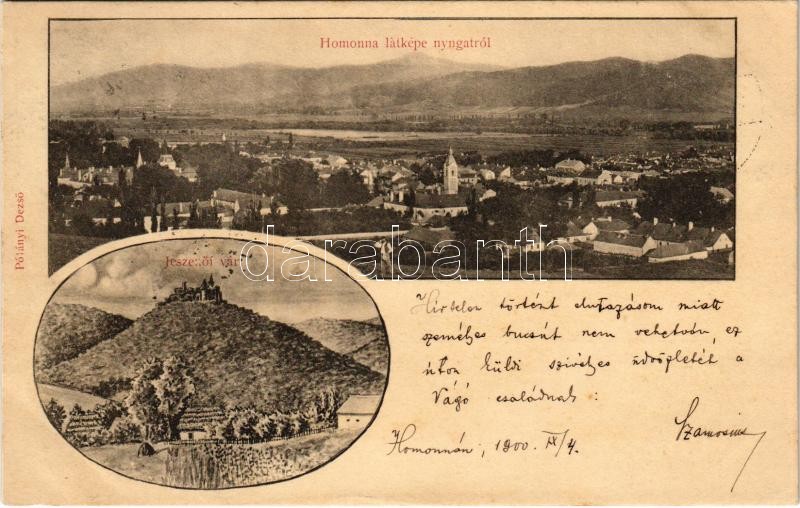 Homonna làtképe nyugatról
Pollányi Dezső
Jeszenői vár
darabanth
Hirtelen történt elutazásom miatt
személyes bucsút nem vehetvén, ez
úton küldi szivélyes üdvözletét a
Vágó családnak:
Szamosius
Homonnán, 1900. IX/4.